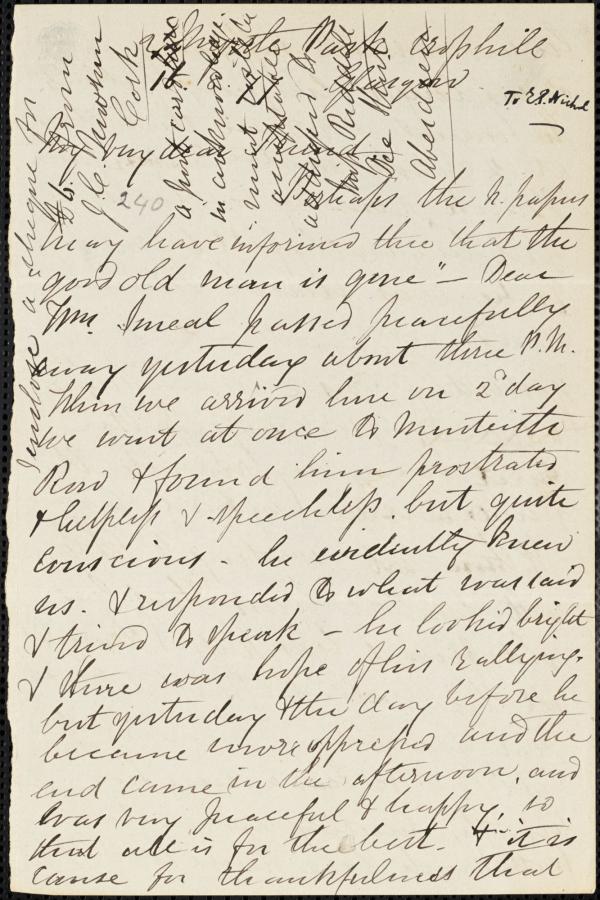 Park Crosshill
Glasgow
To E. P. Nichol
My very dear Friend
Perhaps the N. papers
may have informed thee that the
good old man is gone" — Dear
Wm. Smeal passed peacefully
away yesterday about three P.M.
When we arrived here on 2d day
we went at once to Monteith
Row & found him prostrated
& helpless & speechless, but quite
conscious - he evidently knew
us. & responded to what was said
& tried to speak – he looked bright
& there was hope of his rallying.
but yesterday & the day before he
became more oppressed and the
end came in the afternoon, and
was very peaceful & happy, so
that all is for the best. & it is
cause for thankfulness that
I enclose a cheque for
£6. from
J. C. Newsham
Cork
240
a post card
in acknowledgt.
must be
acceptable
addressed to
Miss
Aberdeen